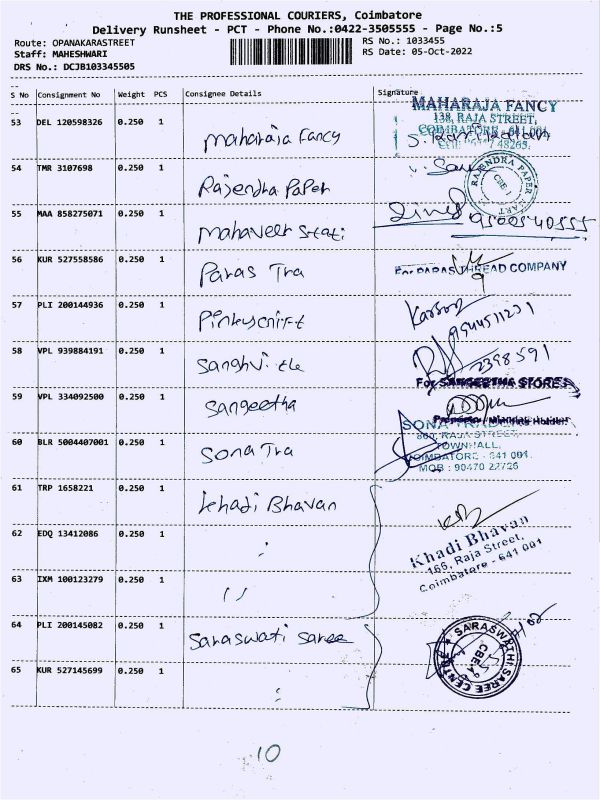 THE PROFESSIONAL COURIERS, Coimbatore
Delivery Runsheet - PCT - Phone No.:0422-3505555 - Page No.:5
Route: OPANAKARASTREET
Staff: MAHESHWARI
DRS No.: DCJB103345505
RS No.: 1033455
RS Date: 05-Oct-2022
S No Consignment No Weight PCS Consignee Details Signature
53 DEL 120598326 0.250 1 maharaja Fancy
MAHARAJA FANCY
138, RAJA STREET,
COIMBATORE - 641 001
48265.
54 TMR 3107698 0.250 1 Rajendra Paper
RAJENDRA PAPER MART
CBE-1
55 MAA 858275071 0.250 1 mahaveer stati
9500540555
56 KUR 527558586 0.250 1 Paras Tra
For PARAS THREAD COMPANY
57 PLI 200144936 0.250 1 Pinkyscrift
9944511231
58 VPL 939884191 0.250 1 sanghvi tle
2398591
59 VPL 334092500 0.250 1 sangeetha
For SANGEETHA STORES
60 BLR 5004407001 0.250 1 sona Tra
RAJA STREET,
TOWNHALL,
COIMBATORE - 641 001.
MOB : 90470 22726
61 TRP 1658221 0.250 1 khadi Bhavan
Khadi Bhavan
166, Raja Street,
Coimbatore - 641 001
62 EDQ 13412086 0.250 1 :
63 IXM 100123279 0.250 1 ,,
64 PLI 200145082 0.250 1 Saraswati saree
SARASWATHI SAREE CENTRE
CBE-1
65 KUR 527145699 0.250 1 :
10